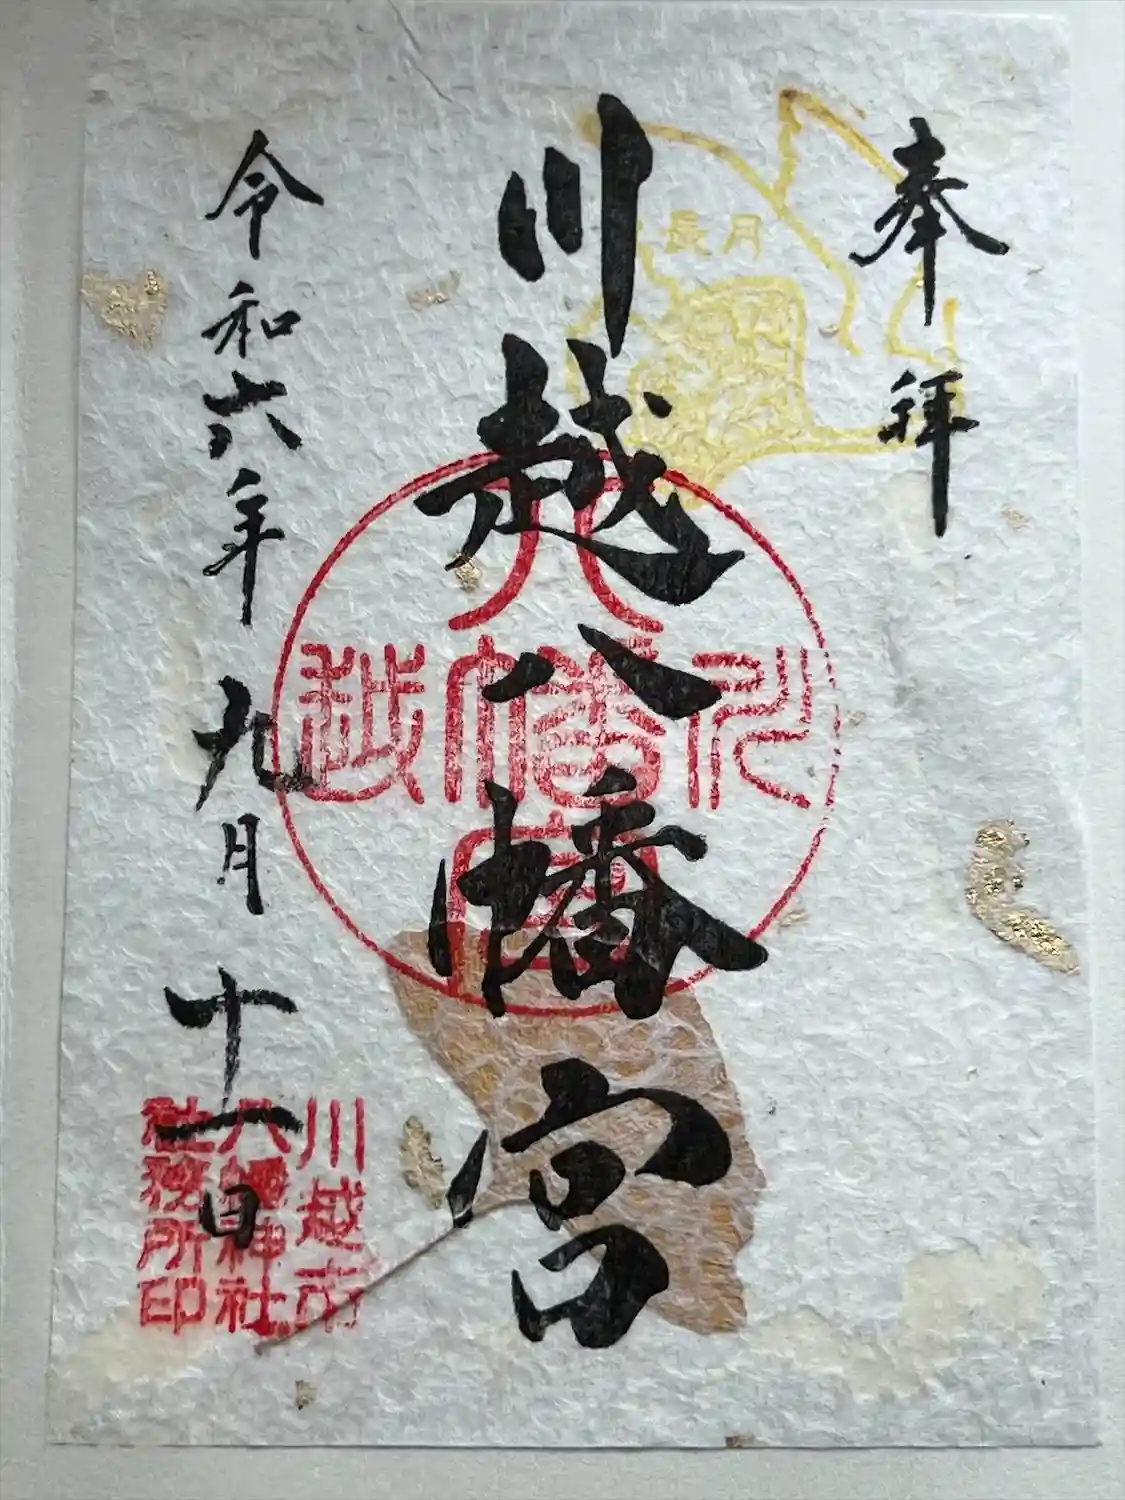 奉拝
長月
川越八幡宮
八幡宮
川越
令和六年九月十一日
川越市
八幡神社
社務所印